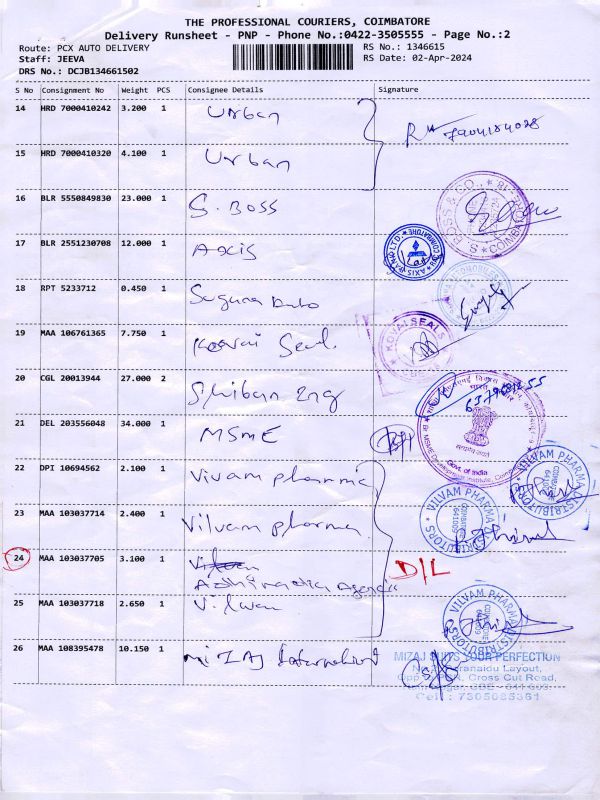 THE PROFESSIONAL COURIERS, COIMBATORE
Delivery Runsheet - PNP - Phone No.:0422-3505555 - Page No.:2
Route: PCX AUTO DELIVERY
RS No.: 1346615
Staff: JEEVA
RS Date: 02-Apr-2024
DRS No.: DCJB134661502
S No Consignment No Weight PCS Consignee Details Signature
14 HRD 7000410242 3.200 1 Urban
15 HRD 7000410320 4.100 1 Urban
16 BLR 5550849830 23.000 1 S. BOSS
17 BLR 2551230708 12.000 1 Axis
18 RPT 5233712 0.450 1 Suguna
19 MAA 106761365 7.750 1 Kovai Seal
KOVAI SEALS
20 CGL 20013944 27.000 2 Shiban Eng
21 DEL 203556048 34.000 1 MSME
Govt. of India
22 DPI 10694562 2.100 1 Vivam pharma
VILVAM PHARMA DISTRIBUTORS
23 MAA 103037714 2.400 1 Vilvam pharma
VILVAM PHARMA DISTRIBUTORS
24 MAA 103037705 3.100 1
D/L
25 MAA 103037718 2.650 1 Vilvam
VILVAM PHARMA DISTRIBUTORS
26 MAA 108395478 10.150 1 MIZAJ International
MIZAJ SUITS YOUR PERFECTION
Layout,
Cross Cut Road,
Cell : 7305085361